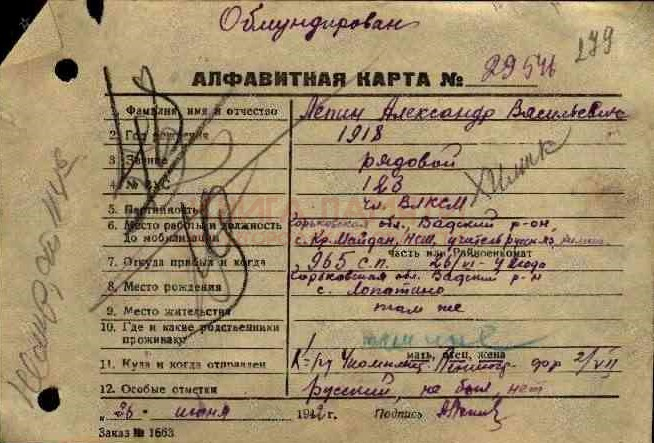 Обмундирован
279
АЛФАВИТНАЯ КАРТА № 29546
1. Фамилия, имя и отчество Лепин Александр Васильевич
2. Год рождения 1918
3. Звание рядовой
4. № ВУС 123
Химик
5. Партийность чл ВЛКСМ
6. Место работы и должность до мобилизации Горьковская обл., Вадский р-он,
с. Кр. Майдан, НСШ, учитель русск яз,
часть или Райвоенкомат
7. Откуда прибыл и когда 965 с.п. 26/VI-42 года
Горьковская обл. Вадский р-н
8. Место рождения с. Лопатино
9. Место жительства там же
10. Где и какие родственники проживают
мать, отец, жена
11. Куда и когда отправлен 2/VII
12. Особые отметки русский, не был, нет
„26" июня 1942 г. Подпись
Заказ № 1663